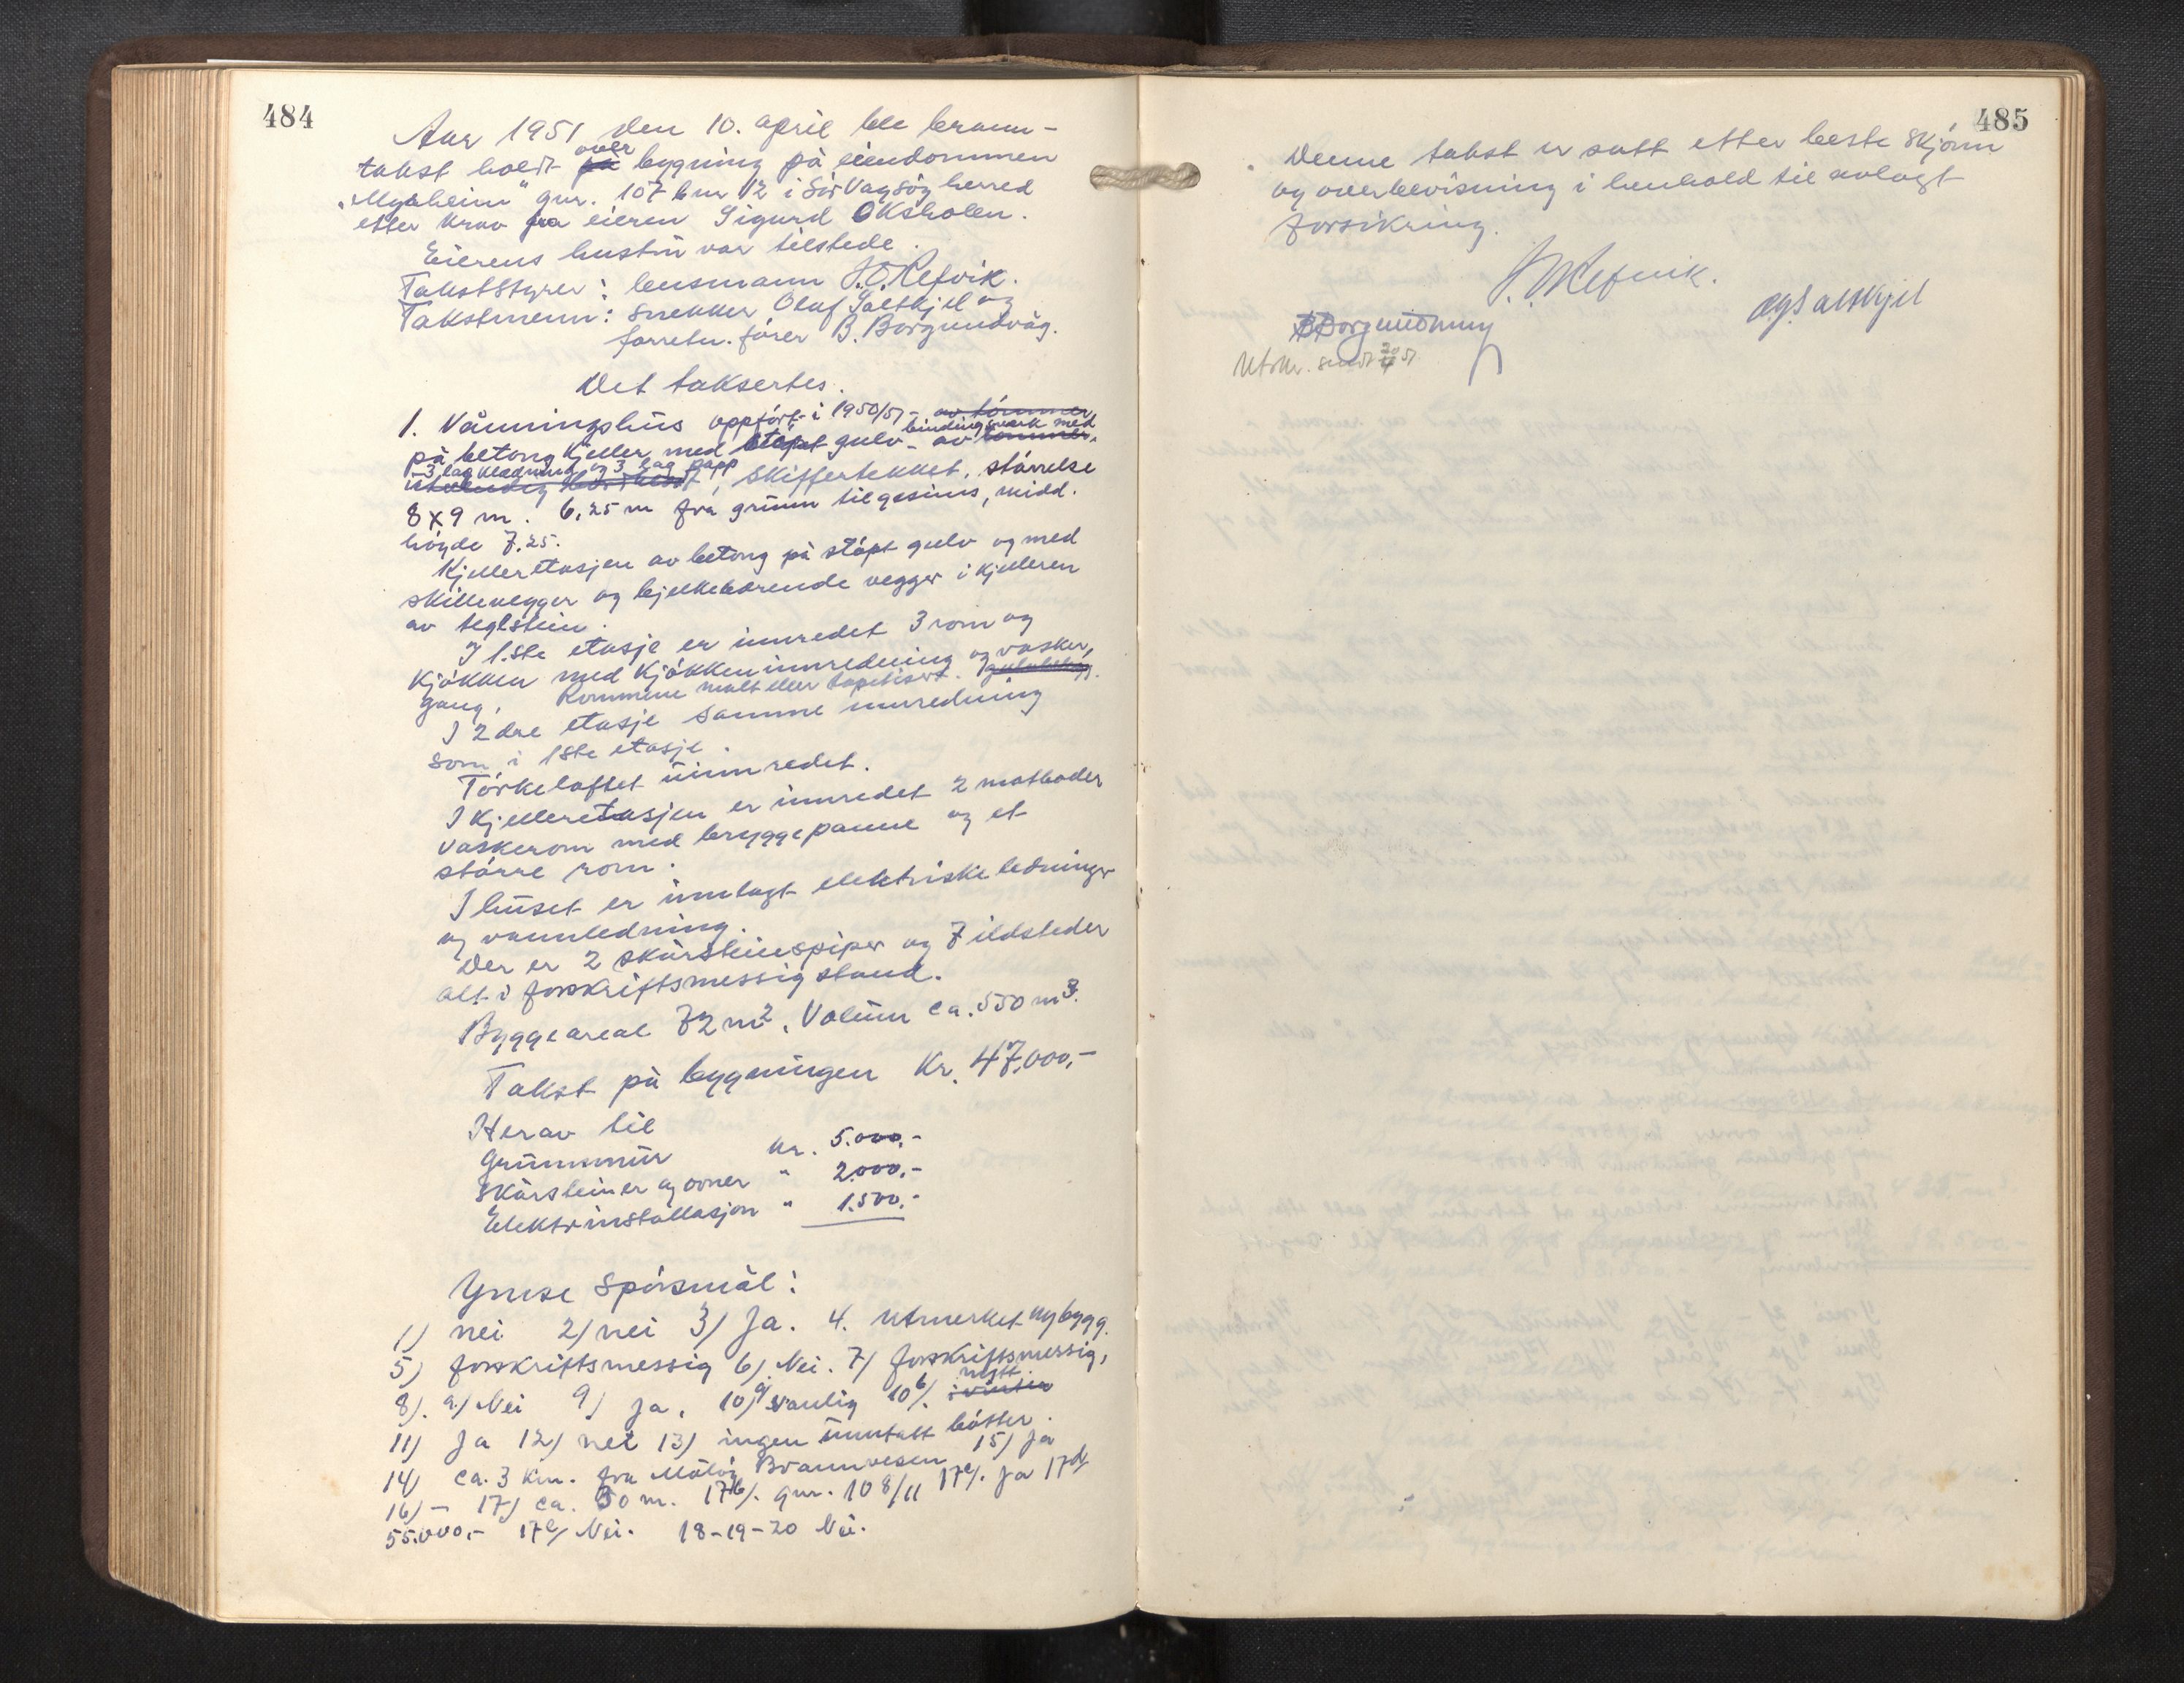 484
Aar 1951 den 10. april ble brann-
takst holdt på over bygning på eiendommen
"Myrheim" gnr. 107 bnr 12 i Sör Vågsöy herred
etter krav fra eieren Sigurd Oksholen.
Eierens hustrü var tilstede.
Takststyrer: lensmann J.O. Refvik.
Takstmenn: snekker Oluf Saltkjel og
forretn. förer B. Borgundvåg.
Det taksertes.
1. Våningshüs oppfört i 1950/51 - av tömmer,
på betong kjeller med stöpt gulv - av tömmer, bindingsverk med
3 lag kledning og 3 lag papp
utvendig bordkledt, skiffertekket, störrelse
8 x 9 m. 6,25 m fra grünn til gesims, midd.
höyde 7.25.
Kjelleretasjen av betong på stöpt gulv og med
skillevegger og bjelkebærende vegger i kjelleren
av teglstein.
I 1.ste etasje er innredet 3 rom og
kjökken med kjökkeninnredning og vasker,
gang. Rommene malt eller tapetisert. gulvbelegg.
I 2dre etasje samme innredning
som i 1ste etasje.
Törkeloftet üinnredet.
I kjelleretasjen er innredet 2 matboder
vaskerom med bryggepanne og et
större rom.
I hüset er innlagt elektriske ledninger
og vannledning.
Der er 2 skorsteinspiper og 7 ildsteder
alt i forskriftsmessig stand.
Byggeareal 72 m2. Volüm ca. 550 m3.
Takst på bygningen kr. 47.000,-
Herav til
Grünnmür kr. 5.000,-
Skorsteiner og ovner " 2.000,-
Elektr installasjon " 1.500,-
Ymse spörsmål:
1) nei 2) nei 3) Ja. 4. Utmerket nybygg.
5) forskriftsmessig 6) Nei. 7) forskriftsmessig,
8). a) Nei 9) Ja. 10) a) vanlig 10 b). nytt i vinter
11) Ja 12) nei 13) ingen ünntatt bötter.
14) ca. 3 km. fra Målöy Brannvesen 15) Ja
16) - 17) ca. 30 m. 17b). gnr. 108/11 17c). Ja 17d)
55.000,- 17e) Nei. 18-19-20 Nei.
485
Denne takst er satt etter beste skjönn
og overbevisning i henhold til avlagt
forsikring.
J.O. Refvik.
B Borgundvåg
O. Saltkjel
Utskr. sendt 20/4 51